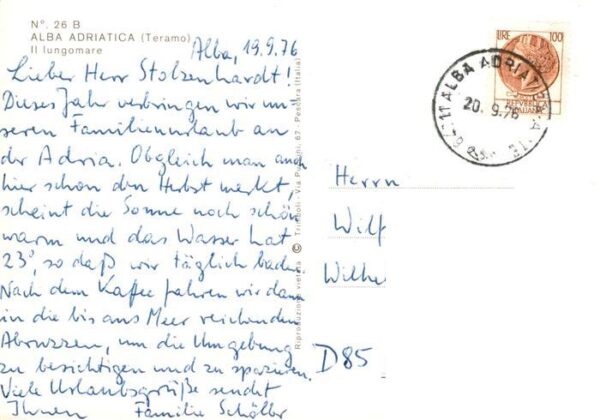 Nº. 26 B
ALBA ADRIATICA (Teramo)
Il lungomare
Alba, 19.9.76
Lieber Herr Stolzenhardt!
Dieses Jahr verbringen wir un=
seren Familienurlaub an
der Adria. Obgleich man auch
hier schon den Herbst merkt,
scheint die Sonne noch schön
warm und das Wasser hat
23°, so daß wir täglich baden.
Nach dem Kaffee fahren wir dann
in die bis ans Meer reichenden
Abruzzen, um die Umgebung
zu besichtigen und zu spazieren.
Viele Urlaubsgrüße sendet
Ihnen Familie Schöller
Riproduzione vietata © Trimboli - Via Pa 67 - Pescara (Italia)
LIRE 100
REPVBBLICA
ITALIANA
ALBA ADRIATICA
20.9.76
Herrn
Wilf
Wilhe
D85